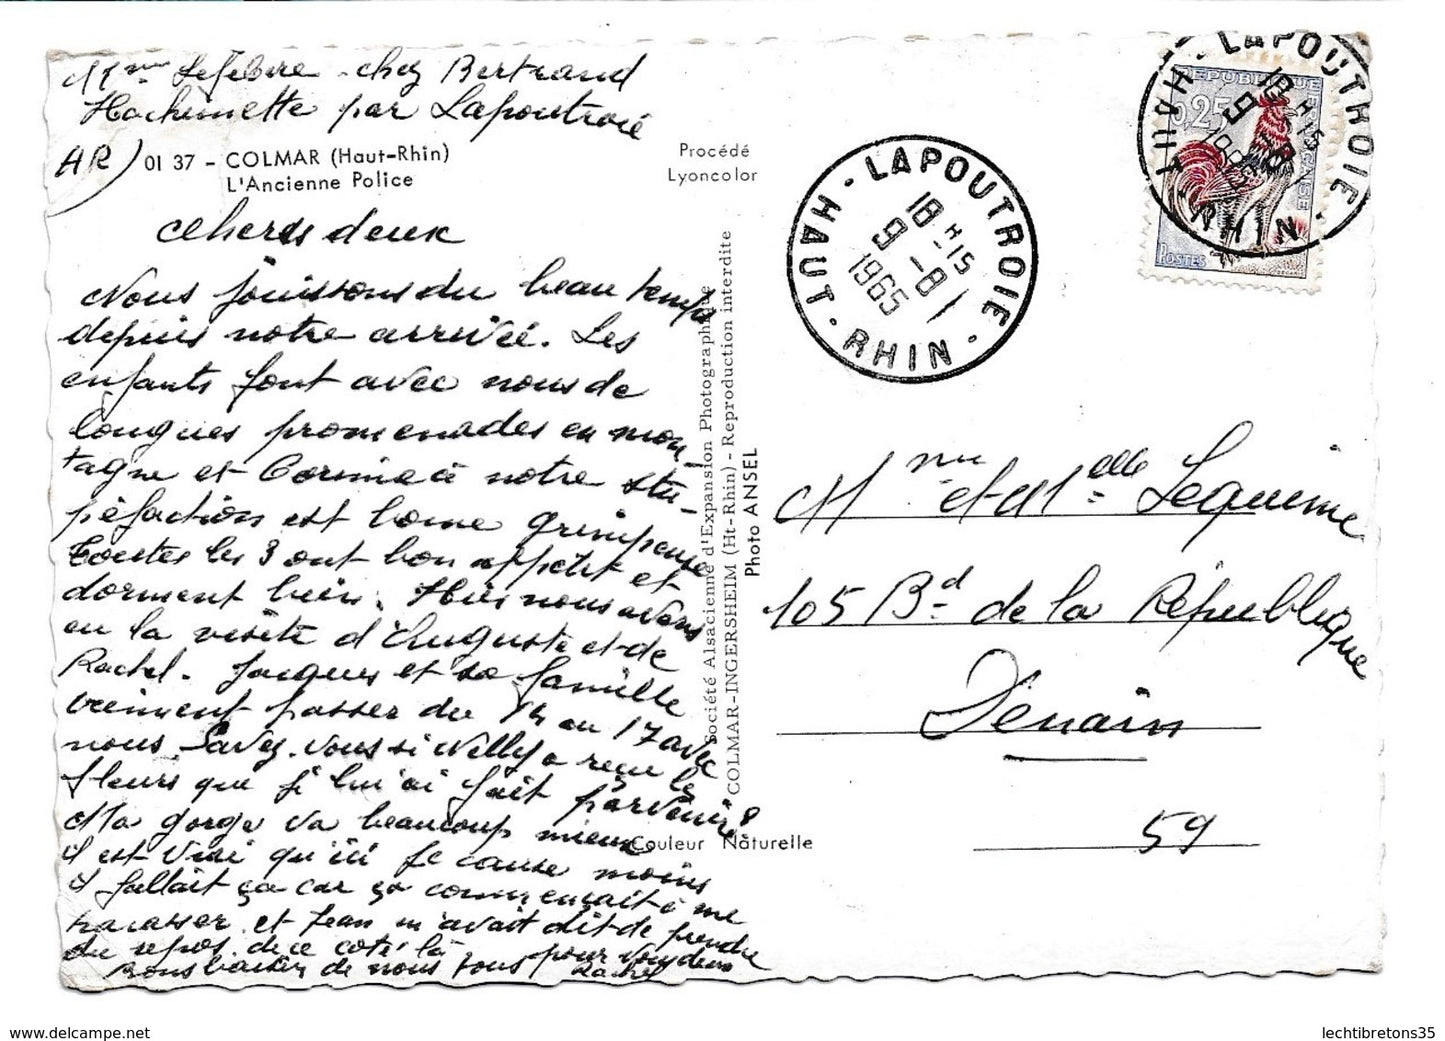 Mme Lefebvre chez Bertrand
Hachimette par Lapoutroie
(HR)
01 37 - COLMAR (Haut-Rhin)
L'Ancienne Police
Procédé
Lyoncolor
Chers deux
Nous jouissons du beau temps
depuis notre arrivée. Les
enfants font avec nous de
longues promenades en mon-
tagne et Corinne à notre stu-
péfaction est bonne grimpeuse
Toutes les 3 ont bon appétit et
dorment bien. Hier nous avons
eu la visite d'Auguste et de
Rachel. Jacques et sa famille
viennent passer du 14 au 17 avec
nous. Savez-vous si Willy a reçu les
fleurs que je lui ai fait parvenir?
Ma gorge va beaucoup mieux
il est vrai qu'ici je cause moins
il fallait ça car ça commençait à me
tracasser et Jean m'avait dit de prendre
du repos de ce côté là
Bons baisers de nous tous pour vous deux
Société Alsacienne d'Expansion Photographique
COLMAR-INGERSHEIM (Ht-Rhin) - Reproduction interdite
Photo ANSEL
Couleur Naturelle
LAPOUTROIE
HAUT-RHIN
18H15
9-8
1965
LAPOUTROIE
HAUT-RHIN
18H15
9-8
1965
REPUBLIQUE FRANCAISE
0,25
POSTES
Mme et Melle Lequime
105 Bd de la République
Denain
59
www.delcampe.net
lechtibretons35